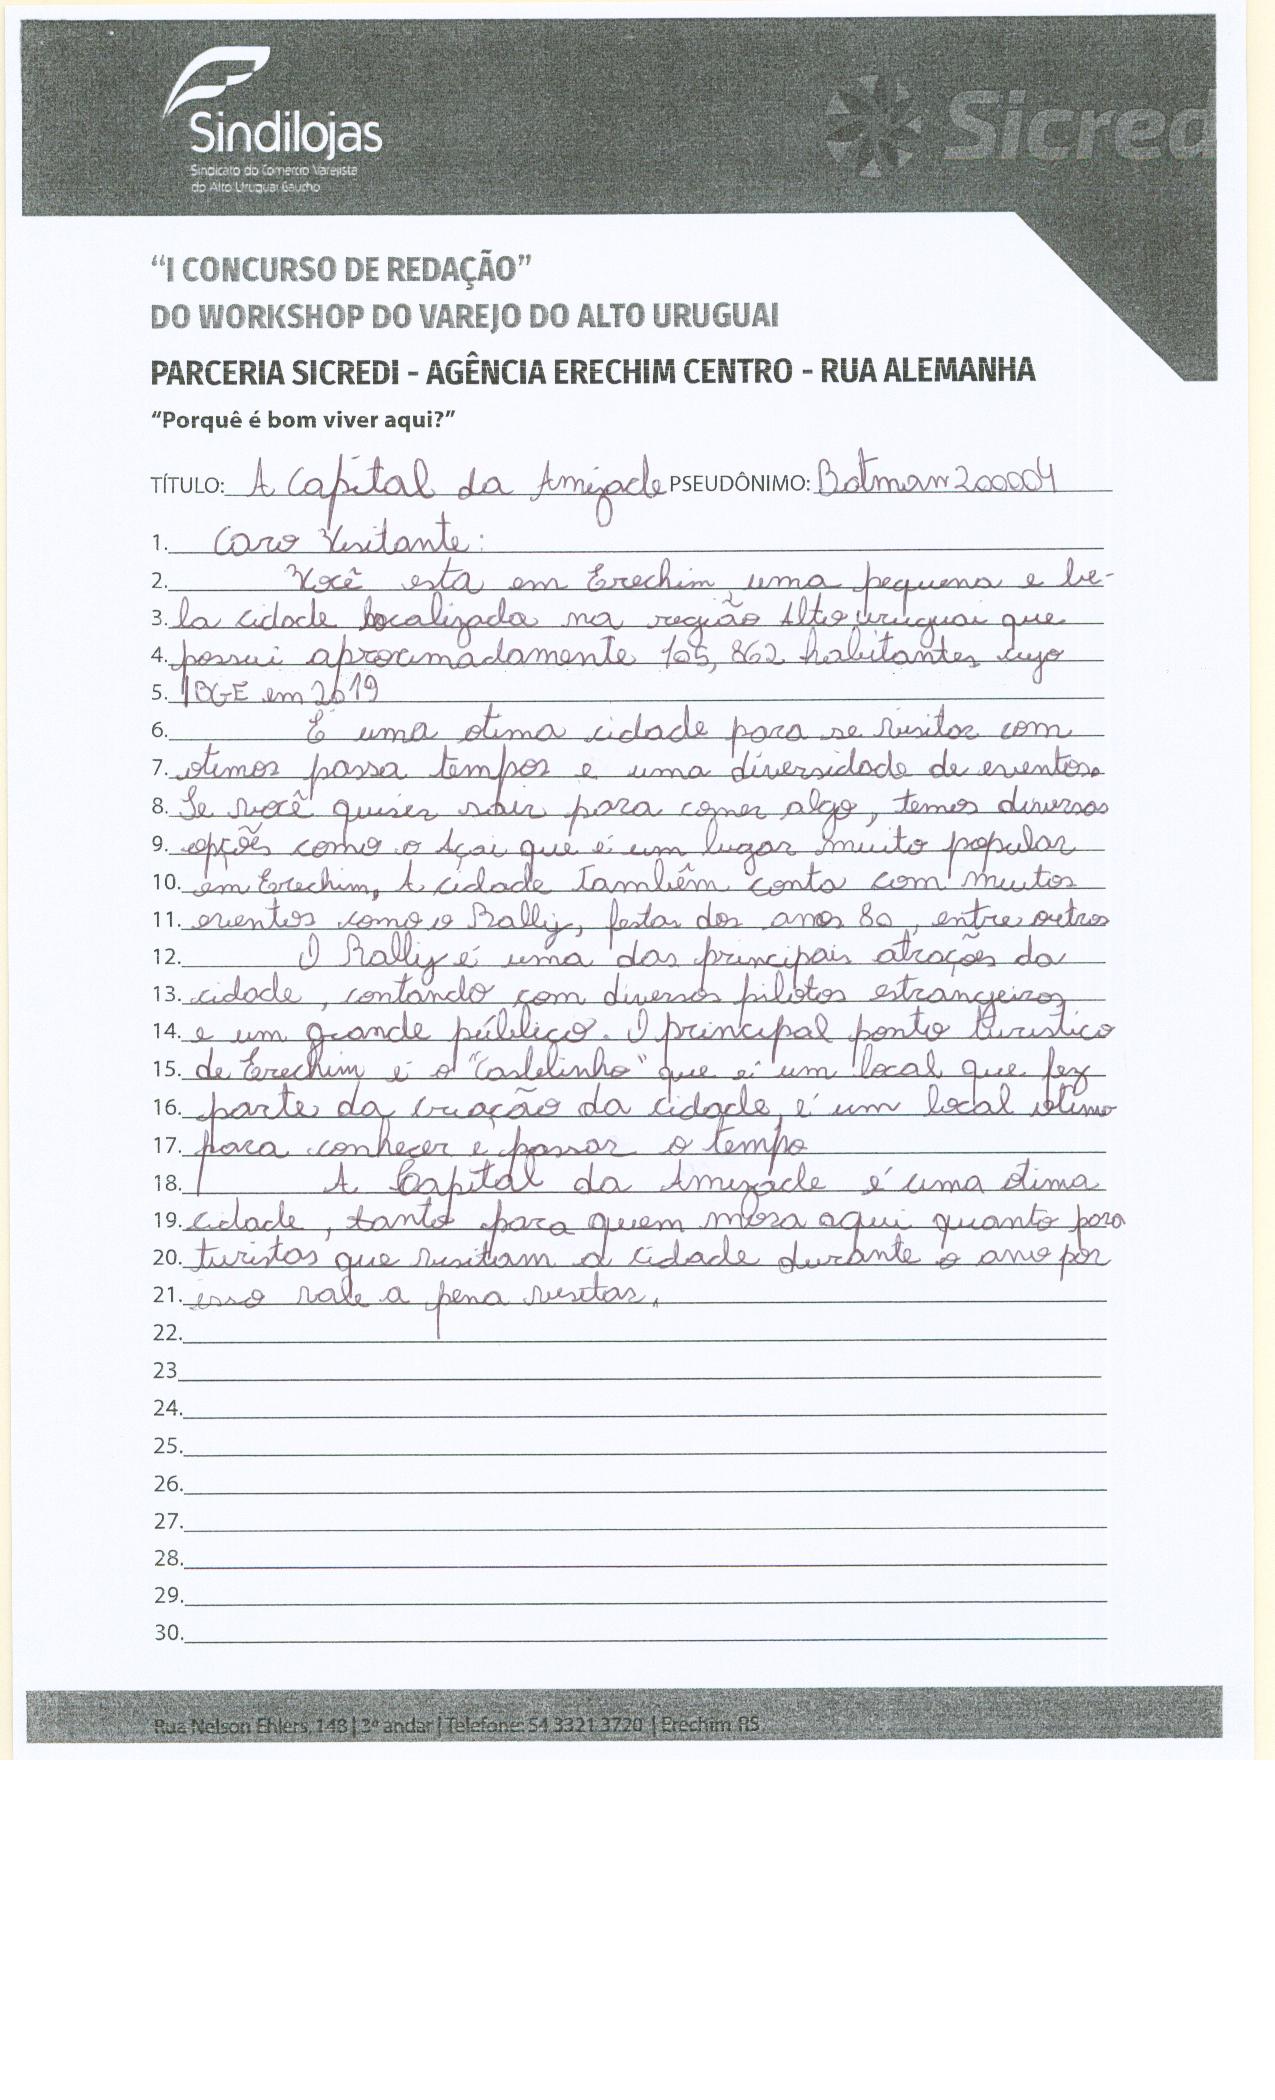 Sindilojas
Sindicato do Comércio Varejista
do Alto Uruguai Gaúcho
Sicred
“I CONCURSO DE REDAÇÃO”
DO WORKSHOP DO VAREJO DO ALTO URUGUAI
PARCERIA SICREDI - AGÊNCIA ERECHIM CENTRO - RUA ALEMANHA
“Porquê é bom viver aqui?”
TÍTULO: A Capital da Amizade PSEUDÔNIMO: Batman200004
1. Caro Visitante:
2. Você esta em Erechim uma pequena e be-
3. la cidade localizada na região Alto uruguai que
4. possui aproximadamente 105,862 habitantes cujo
5. IBGE em 2019
6. É uma otima cidade para se visitar com
7. otimos passa tempos e uma diversidade de eventos.
8. Se você quiser sair para comer algo, temos diversas
9. opções como o Açai que é um lugar muito popular
10. em Erechim, A cidade também conta com muitos
11. eventos como o Rally, festas dos anos 80, entre outros
12. O Rally é uma das principais atrações da
13. cidade, contando com diversos pilotos estrangeiros
14. e um grande público. O principal ponto turistico
15. de Erechim é o "Castelinho" que é um local que fez
16. parte da criação da cidade, é um local otimo
17. para conhecer e passar o tempo
18. A Capital da Amizade é uma ótima
19. cidade, tanto para quem mora aqui quanto para
20. turistas que visitam a cidade durante o ano por
21. isso vale a pena visitar.
22.
23
24.
25.
26.
27.
28.
29.
30.
Rua Nelson Ehlers, 148 | 3º andar | Telefone: 54 3321 3720 | Erechim RS